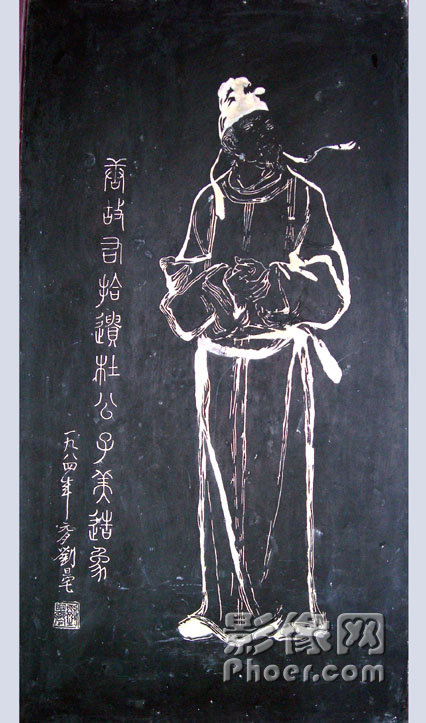 唐故右拾遺杜公子美造象
一九八四年 劉
影像网
Phoer.com